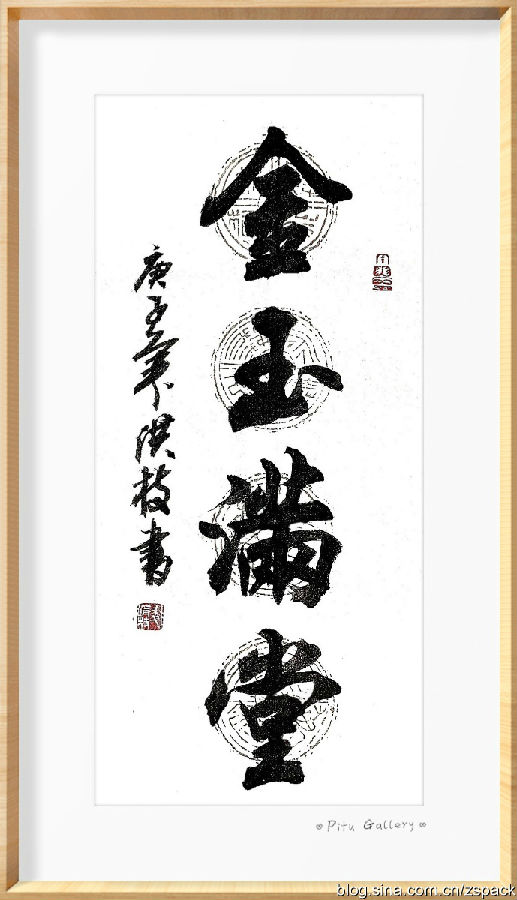 金玉满堂
庚子年洪枝书
Pitu Gallery
blog.sina.com.cn/zspack